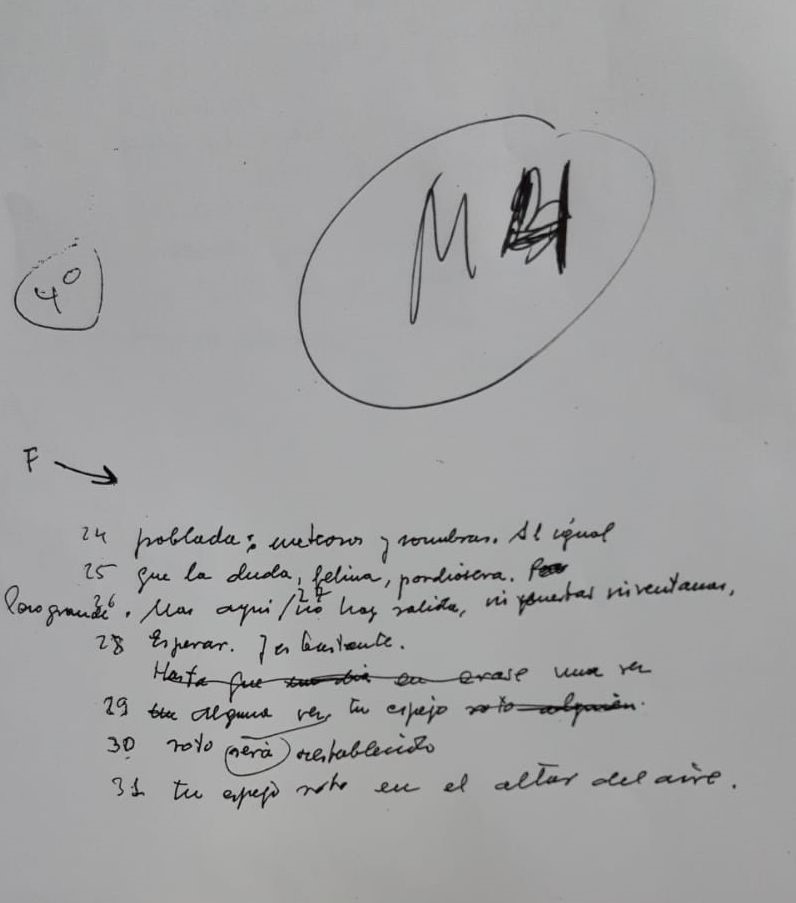 M
4º
F
24 poblada: meteoros y sombras. Al igual
25 que la duda, felina, pordiosera.
Pero grande. 26 Mas aquí / 27 no hay salida, ni puertas ni ventanas,
28 Esperar. Y es bastante.
Hasta que en erase una vez
29 alguna vez, tu espejo roto alguien.
30 roto será restablecido
31 tu espejo roto en el altar del aire.